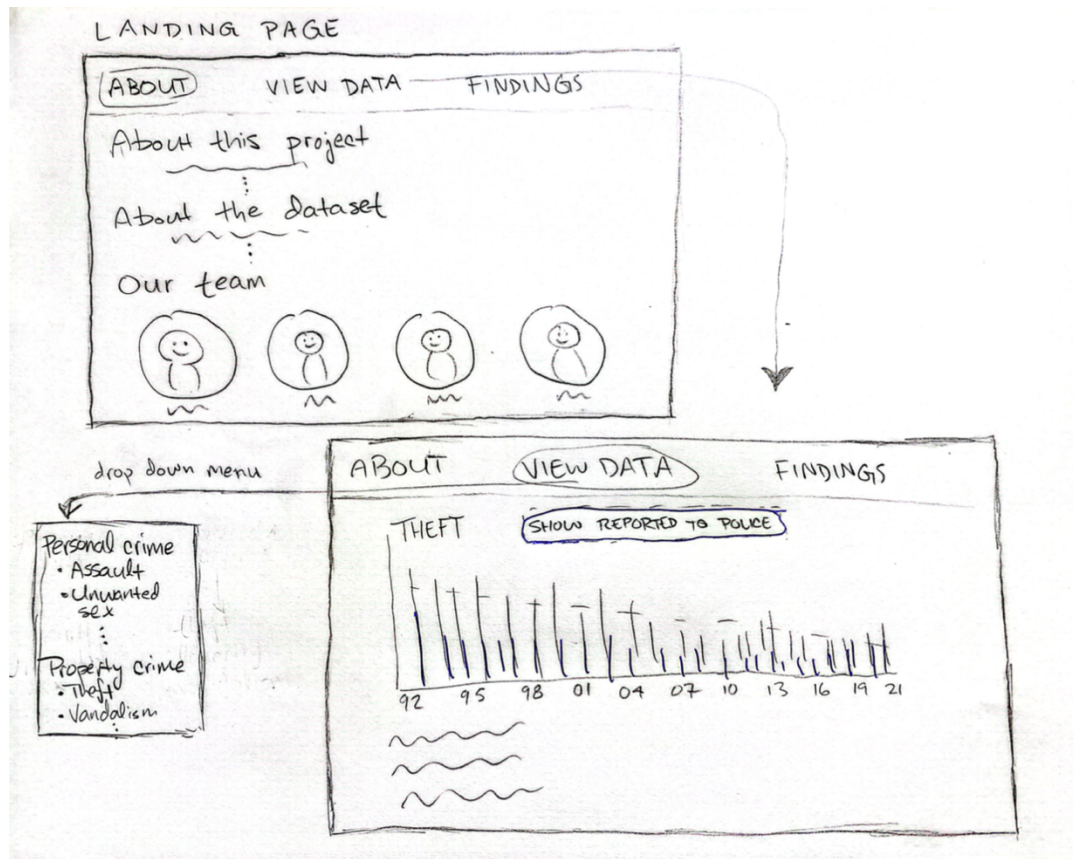 LANDING PAGE
ABOUT VIEW DATA FINDINGS
About this project
About the dataset
Our team
drop down menu
Personal crime
• Assault
• Unwanted
sex
Property crime
• Theft
• Vandalism
ABOUT VIEW DATA FINDINGS
THEFT SHOW REPORTED TO POLICE
92 95 98 01 04 07 10 13 16 19 21